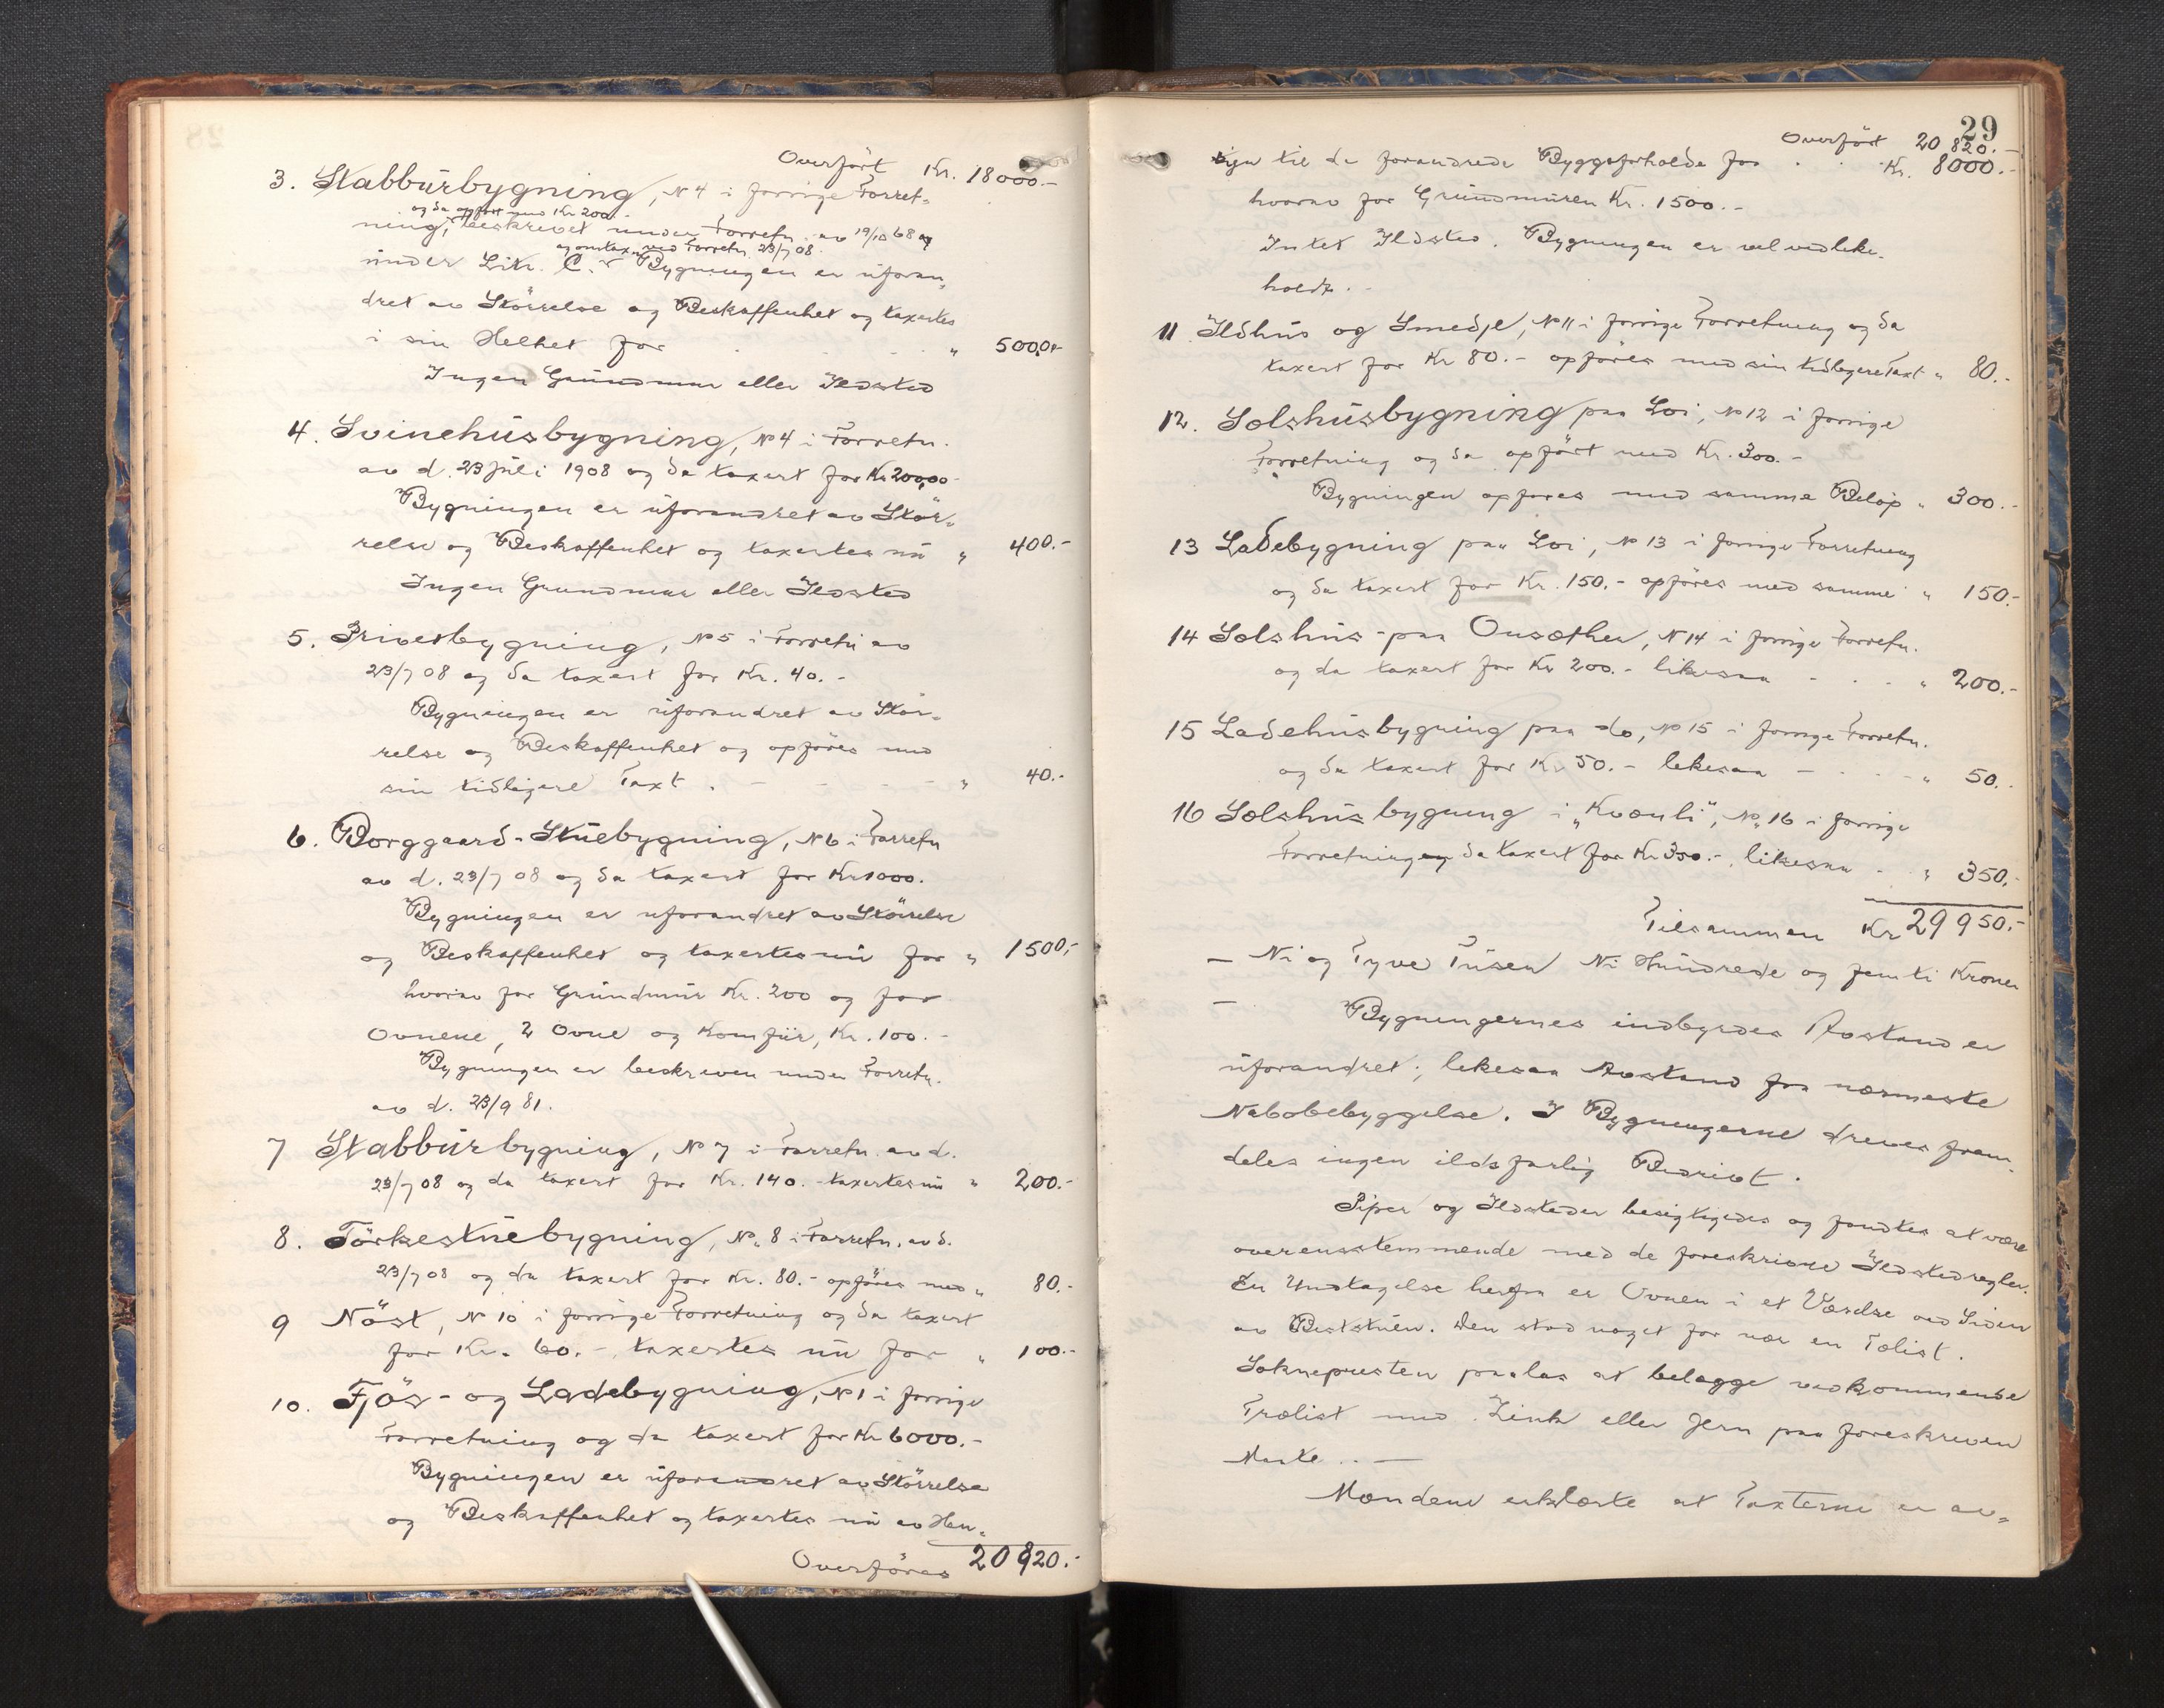 Overført Kr. 18000.-
3. Stabbúrbygning, N 4 i forrige Forret-
og da opført med Kr 200.-
ning, beskrevet under Forretn. av 19/10 68 og
og omtax. ved Forretn. 23/7 08.
under Litr. C. Bygningen er úforan-
dret av Størrelse og Beskaffenhet og taxertes
i sin Helhet for . . . . " 500,00-
Ingen Grúndmur eller Ildsted
4. Svinehúsbygning, No 4 i Forretn.
av d. 23 Júli 1908 og da taxert for Kr 200,00-
Bygningen er úforandret av Stør-
relse og Beskaffenhet og taxertes nú " 400.-
Ingen Grundmur eller Ildsted
5. Privetbygning, No 5 i Forretn av
23/7 08 og da taxert for Kr. 40.-
Bygningen er úforandret av Stør-
relse og Beskaffenhet og opføres med
sin tidligere Taxt . - - - " 40.-
6. Borggaard-Stúebygning, N 6 i Forretn
av d. 23/7 08 og da taxert for Kr 1000.
Bygningen er uforandret av Størrelse
og Beskaffenhet og taxertes nú for " 1500,-
hvorav for Grúndmúr Kr. 200 og for
Ovnene, 2 Ovne og Komfúr, Kr. 100.-
Bygningen er beskreven under Forretn.
av d. 23/9 81.
7 Stabbúrbygning, No 7 i Forretn. av d.
23/7 08 og da taxert for Kr. 140.- taxertes nú " 200.-
8. Törkestúebygning, No. 8 i Forretn. av d.
23/7 08 og da taxert for Kr. 80.- opføres med " 80.-
9 Nöst, N 10 i forrige Forretning og da taxert
for Kr. 60.- taxertes nú for " 100.-
10. Fjös- og Ladebygning, No 1 i forrige
Forretning og da taxert for Kr 6000.-
Bygningen er úforandret av Størrelse
og Beskaffenhet og taxertes nú av Hen-
Overføres 20 820.-
29
Overført 20 820.-
syn til de forandrede Byggeforholde for . . Kr. 8000.-
hvorav for Grúndmúren Kr. 1500.-
Intet Ildsted. Bygningen er vel vedlike-
holdt.-
11 Ildhús og Smedje, No 11 i forrige Forretning og da
taxert for Kr 80.- opføres med sin tidligere Taxt " 80.-
12. Solshúsbygning paa Loi, No 12 i forrige
Forretning og da opført med Kr. 300.-
Bygningen opføres med samme Beløp " 300.-
13 Ladebygning paa Loi, No 13 i forrige Forretning
og da taxert for Kr. 150.- opføres med samme " 150.-
14 Solshús paa Onsæther, N 14 i forrige Forretn.
og da taxert for Kr 200.- likesaa - . . " 200.-
15 Ladehúsbygning paa do, No 15 i forrige Forretn.
og da taxert for Kr 50.- likesaa - . . - " 50.
16 Solshúsbygning i "Kvænli", No. 16 i forrige
Forretning og da taxert for Kr 350.- likesaa . " 350.-
Tilsammen Kr 29 950.-
- Ni og Tyve Túsen Ni Húndrede og femti Kroner
- Bygningernes indbyrdes Avstand er
úforandret; likesaa Avstand fra nærmeste
Nabobebyggelse. I Bygningerne dreves frem-
deles ingen ildsfarlig Bedrivt.
Piper og Ildsteder besigtigedes og fandtes at være
overensstemmende med de foreskrivne Ildstedregler.
En Undtagelse herfra er Ovnen i et Værelse ved Siden
av Beststúen. Den stod noget for nær en Tælist.
Sokneprsten paalas at belægge vedkommende
Trælist med Zink eller Jern paa foreskreven
Maate.. -
Mændene erklærte at Taxterne er av-